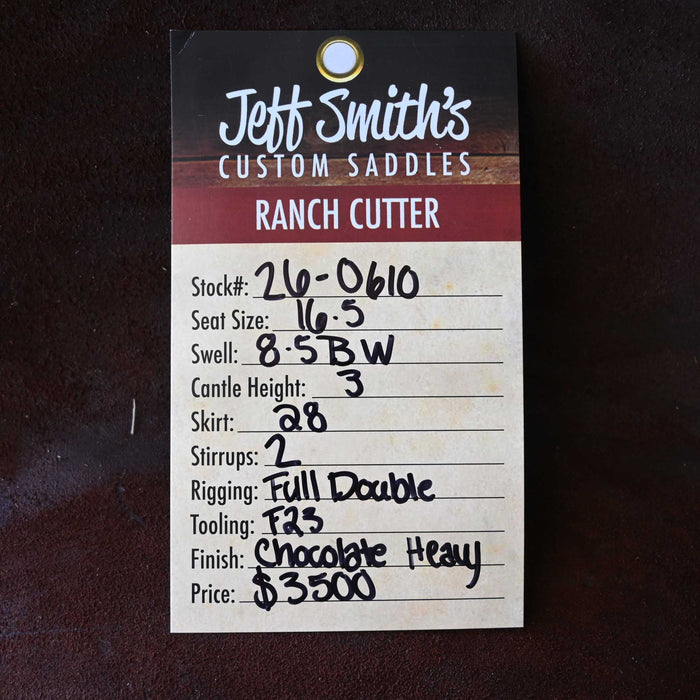 Jeff Smith's
CUSTOM SADDLES
RANCH CUTTER
Stock#: 26-0610
Seat Size: 16.5
Swell: 8.5 BW
Cantle Height: 3
Skirt: 28
Stirrups: 2
Rigging: Full Double
Tooling: F23
Finish: Chocolate Heavy
Price: $3500